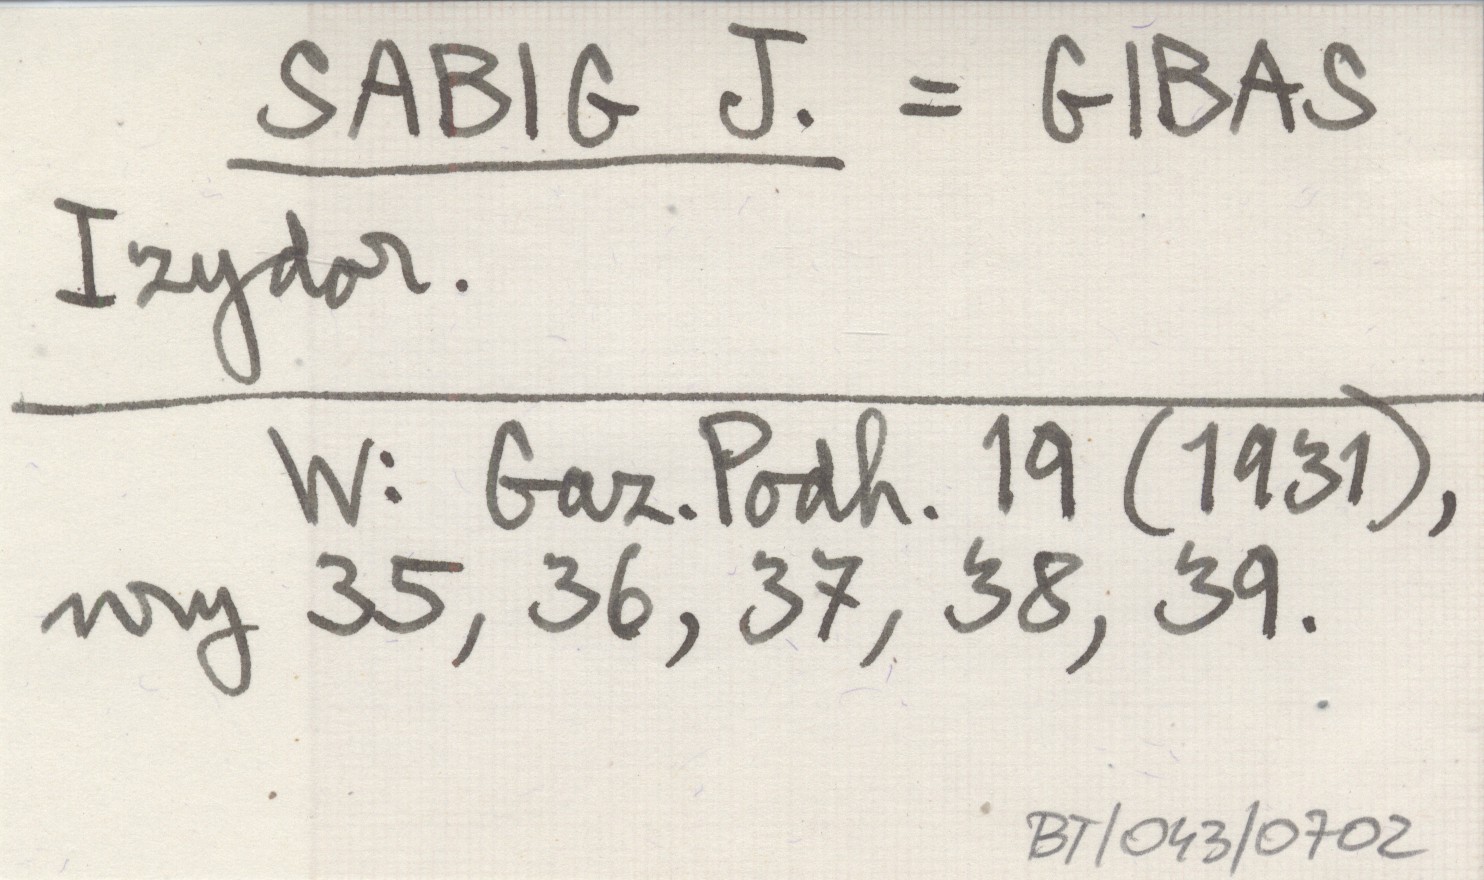 SABIG J. = GIBAS
Izydor.
W: Gaz. Podh. 19 (1931),
nry 35, 36, 37, 38, 39.
BT/043/0702